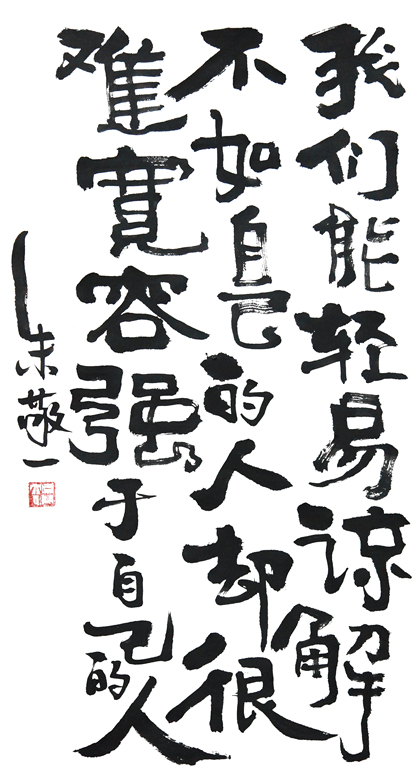 我们能轻易谅解
不如自己的人却很
难宽容强于自己的人
朱敬一